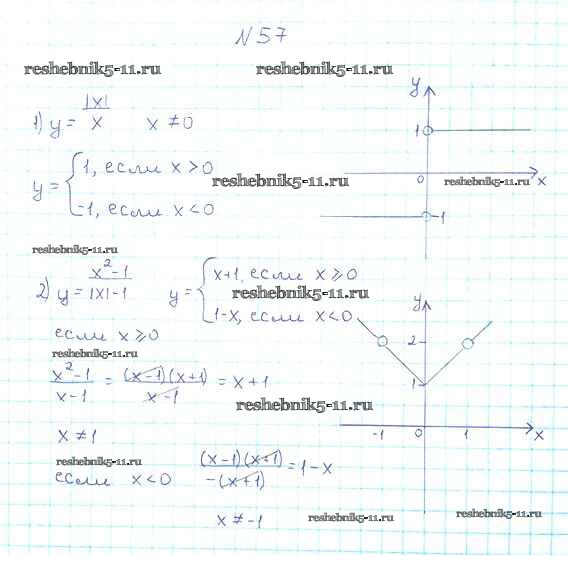 N 57
reshebnik5-11.ru reshebnik5-11.ru
1) y = |x|/x x ≠ 0
y = { 1, если x > 0
-1, если x < 0
reshebnik5-11.ru
y
1
0
x
-1
reshebnik5-11.ru
reshebnik5-11.ru
2) y = x²-1/|x|-1 y = { x+1, если x ⩾ 0
1-x, если x < 0
reshebnik5-11.ru
если x ⩾ 0
reshebnik5-11.ru
x²-1/x-1 = (x-1)(x+1)/x-1 = x+1
reshebnik5-11.ru
x ≠ 1
reshebnik5-11.ru
если x < 0 (x-1)(x+1)/-(x+1) = 1-x
x ≠ -1
y
2
1
-1 0 1 x
reshebnik5-11.ru
reshebnik5-11.ru